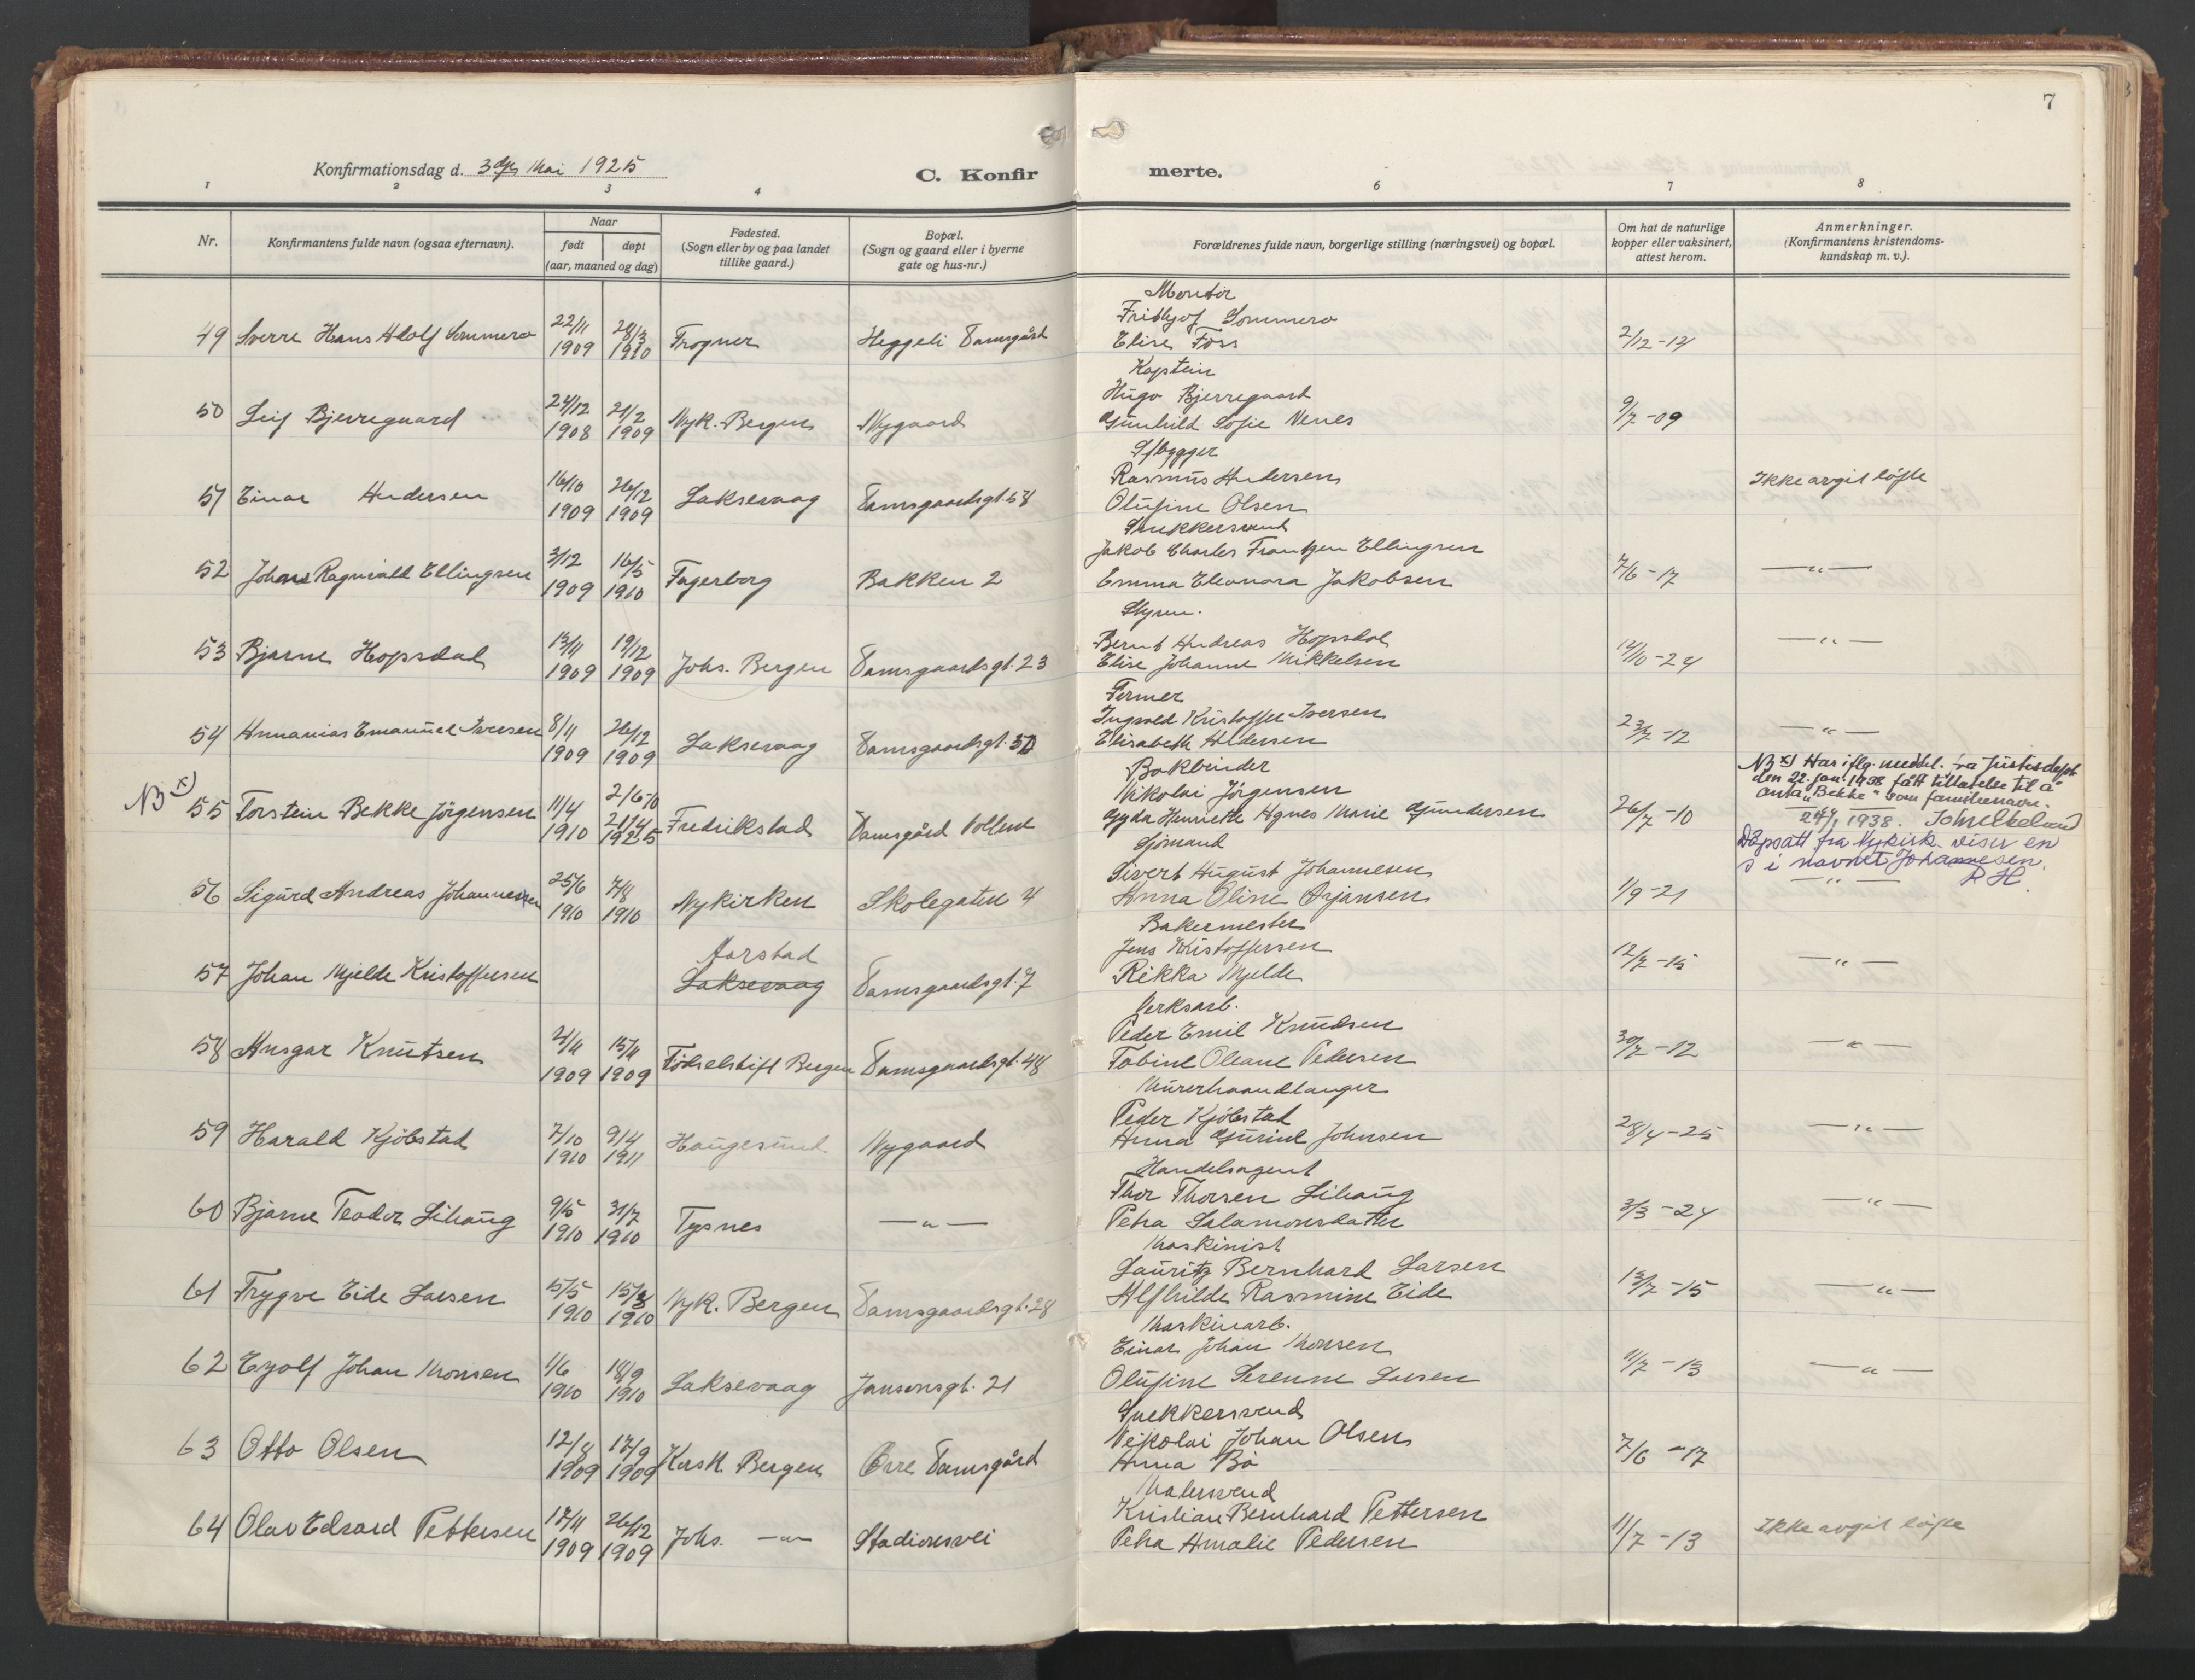 7
Konfirmationsdag d. 3dje Mai 1925
C. Konfirmerte.
1 2 3 4 6 7 8
Nr.
Konfirmantens fulde navn (ogsaa efternavn).
Naar
født døpt
(aar, maaned og dag)
Fødested.
(Sogn eller by og paa landet
tillike gaard.)
Bopæl.
(Sogn og gaard eller i byerne
gate og hus-nr.)
Forældrenes fulde navn, borgerlige stilling (næringsvei) og bopæl.
Om hat de naturlige
kopper eller vaksinert,
attest herom.
Anmerkninger.
(Konfirmantens kristendoms-
kundskap m. v.).
Montør
49 Sverre Hans Olaf Sommero 22/11 1909 28/3 1910 Frogner Heggeli Damsgård Fridtjof Sommero
Elise Foss 2/12-14
Kaptein
50 Leif Bjerregaard 24/12 1908 21/2 1909 Nyk. Bergen Nygaard Hugo Bjerregaard
Gunhild Sofie Venes 9/7-09
51 Einar Andersen 16/10 1909 26/12 1909 Laksevaag Damsgaardsgt. 58 Rasmus Andersen Ikke avgit löfte
Olufine Olsen
Snekkersvend
52 Johans Ragnvald Ellingsen 3/12 1909 16/5 1910 Fagerborg Bakken 2 Jakob Charles Frantzen Ellingsen
Emma Eleonora Jakobsen 7/6-17 — " —
Styrm.
53 Bjarne Hopsdal 13/11 1909 19/12 1909 Johs. Bergen Damsgaardsgt. 23 Bernt Andreas Hopsdal — " —
Elise Johanne Mikkelsen 14/10-24
Former
54 Annanias Emanuel Iversen 8/11 1909 26/12 1909 Laksevaag Damsgaardsgt. 50 Ingvald Kristoffer Iversen
Elisabeth Andersen 23/7-12 — " —
Bokbinder
NB x) 55 Torstein Bekke Jörgensen 11/4 1910 2/6-10 21/4 1925 Fredrikstad Damsgård Vollene Nikolai Jörgensen
Gyda Henriette Agnes Marie Gundersen 26/7-10
NB x) Har iflg. meddel. fra Justisdept
den 22. jan. 1938 fått tillatelse til å
anta "Bekke" som familienavn.
24/1 1938.
Sjömand
56 Sigurd Andreas Johannessen 25/6 1910 7/8 1910 Nykirken Skolegaten 4 Sivert August Johannesen
Anna Oline Örjansen 1/9-21
Dåpsatt fra Nykirk. viser en
s i navnet Johannesen.
— " — R H.
Bakermester
57 Johan Mjelde Kristoffersen Aarstad
Laksevaag Damsgaardsgt. 7 Jens Kristoffersen
Rikka Mjelde 12/7-15 — " —
Verksarb.
58 Ansgar Knutsen 2/11 1909 15/11 1909 Födselstift Bergen Damsgaardsgt. 48 Peder Emil Knudsen
Tobine Oleane Pedersen 30/7-12 — " —
Murerhaandlanger
59 Harald Kjöbstad 7/10 1910 9/4 1911 Haugesund Nygaard Peder Kjöbstad
Anna Gurine Johnsen 28/4-25 — " —
Handelsagent
60 Bjarne Teodor Lihaug 9/5 1910 31/7 1910 Tysnes — " — Thor Thorsen Lihaug
Petra Salamonsdatter 3/3-24 — " —
Maskinist
61 Trygve Eide Larsen 15/5 1910 15/8 1910 Nyk. Bergen Damsgaardsgt. 28 Lauritz Bernhard Larsen
Alfhilde Rasmine Eide 13/7-15 — " —
Maskinarb.
62 Eyolf Johan Monsen 1/6 1910 18/9 1910 Laksevaag Jansonsgt. 21 Einar Johan Monsen
Olufine Serenne Larsen 11/7-13 — " —
Snekkersvend
63 Otto Olsen 12/8 1909 17/9 1909 Korsk. Bergen Övre Damsgård Nikolai Johan Olsen
Anna Bö 7/6-17
Malersvend
64 Olav Edvard Pettersen 17/11 1909 26/12 1909 Johs. — " — Stadionsvei Kristian Bernhard Pettersen
Petra Amalie Pedersen 11/7-13 Ikke avgit löfte